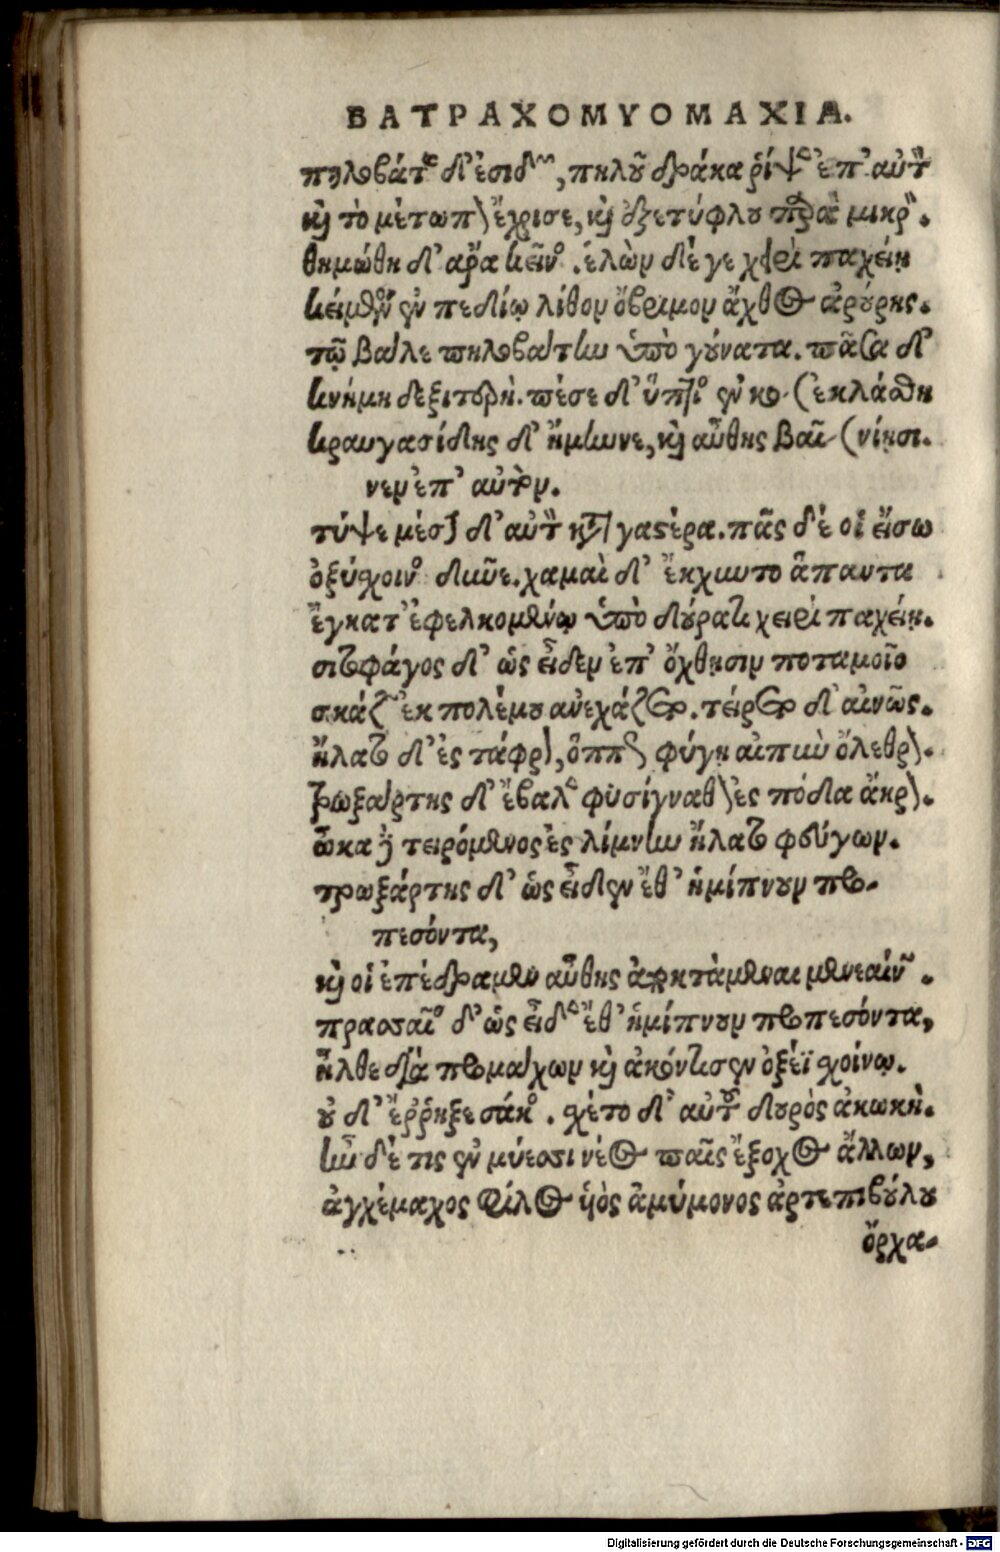 ΒΑΤΡΑΧΟΜΥΟΜΑΧΙΑ.
πηλοβάτης δ' ἐσιδὼν, πηλοῦ δράκα ῥίψεν ἐπ' αὐτὸν
καὶ τὸ μέτωπον ἔχρισε, καὶ ἐξετύφλου παρὰ μικρόν.
θυμώθη δ' ἄρα κεῖνος. ἑλὼν δέ γε χειρὶ παχείῃ
κείμενον ἐν πεδίῳ λίθον ὄβριμον ἄχθος ἀρούρης.
τῷ βάλε πηλοβάτην ὑπὸ γούνατα. πᾶσα δ'
κνήμη δεξιτερὴ. πέσε δ' ὕπτιος ἐν κο- (ἐκλάσθη
κραυγασίδης δ' ἤμυνε, καὶ αὖθις βαῖ- (νίῃσι.
νεν ἐπ' αὐτόν.
τύψε μέσην δ' αὐτοῦ κατὰ γαστέρα. πᾶς δέ οἱ εἴσω
ὀξύσχοινος δῦνε. χαμαὶ δ' ἔκχυντο ἅπαντα
ἔγκατ' ἐφελκομένῳ ὑπὸ δούρατι χειρὶ παχείῃ.
σιτοφάγος δ' ὡς εἶδεν ἐπ' ὄχθησιν ποταμοῖο
σκάζων ἐκ πολέμου ἀνεχάζετο. τείρετο δ' αἰνῶς.
ἥλατο δ' ἐς τάφρον, ὅππως φύγῃ αἰπὺν ὄλεθρον.
τρωξάρτης δ' ἔβαλε φυσίγναθον ἐς πόδα ἄκρον.
ὦκα δὲ τειρόμενος ἐς λίμνην ἥλατο φεύγων.
τρωξάρτης δ' ὡς εἶδεν ἔθ' ἡμίπνουν προ-
πεσόντα,
καὶ οἱ ἐπέδραμεν αὖθις ἀποκτάμεναι μενεαίνων.
πρασσαῖος δ' ὡς εἶδεν ἔθ' ἡμίπνουν προπεσόντα,
ἦλθε διὰ προμάχων καὶ ἀκόντισεν ὀξέϊ σχοίνῳ.
οὐ δ' ἔῤῥηξε σάκος. σχέτο δ' αὐτοῦ δουρὸς ἀκωκὴ.
ἦν δέ τις ἐν μύεσσι νέος παῖς ἔξοχος ἄλλων,
ἀγχέμαχος φίλος υἱὸς ἀμύμονος ἀρτεπιβούλου
ὄρχα-
Digitalisierung gefördert durch die Deutsche Forschungsgemeinschaft - DFG